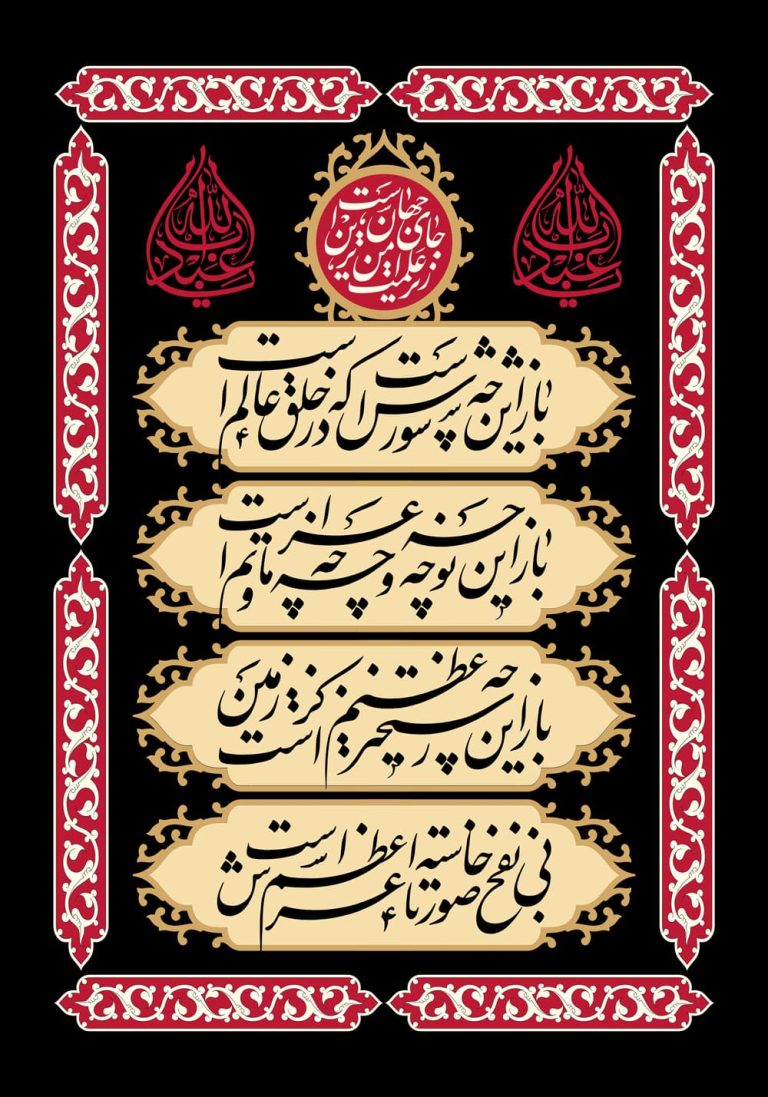 یا اباعبدالله
زیر علمت امن ترین جای جهان است
یا اباعبدالله
باز این چه شورش است که در خلق عالم است
باز این چه نوحه و چه عزا و چه ماتم است
باز این چه رستخیز عظیم است کز زمین
بی نفخ صور خاسته تا عرش اعظم است